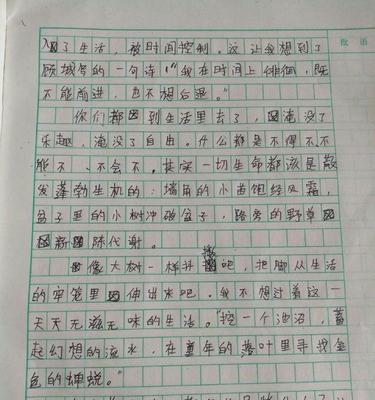 批语
入了生活,被时间控制。这让我想到了
顾城写的一句诗:"我在时间上徘徊,既
不能前进,也不想后退。"
你们都到生活里去了,淹没了
乐趣,淹没了自由。什么都是不得不、不
能不、不会不。其实一切生命都该是散
发蓬勃生机的:墙角的小苗饱经风霜,
盆子里的小树冲破盆子,路旁的野草
新陈代谢。
像大树一样抖擞吧,把脚从生活
的牢笼里伸出来吧。我不想过着这一
天天无滋无味的生活。"挖一个池沼,蓄
起幻想的流水,在童年的落叶里寻找金
色的蝉蜕。"